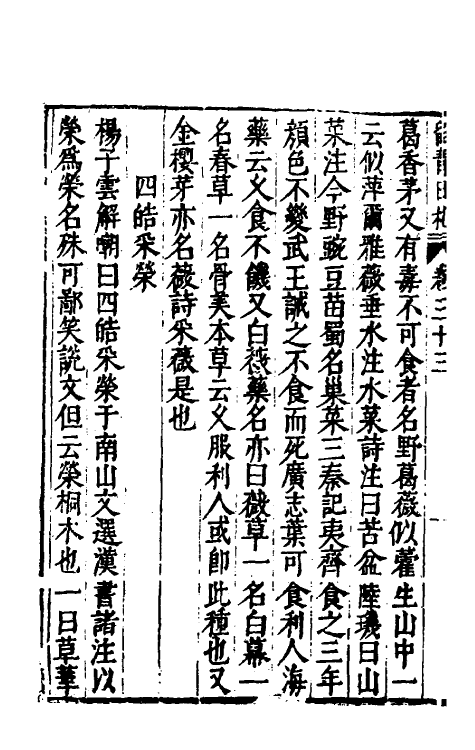 留青日札 卷三十三
葛香茅又有毒不可食者名野葛薇似藿生山中一
云似萍爾雅薇垂水注水菜詩注曰苦益陸璣曰山
菜注今野豌豆苗蜀名巢菜三秦記夷齊食之三年
顔色不變武王誡之不食而死廣志葉可食利人海
藥云乂食不饑又白薇藥名亦曰薇草一名白幕一
名春草一名骨美本草云乂服利人或即此種也又
金櫻芽亦名薇詩采薇是也
四皓采榮
楊子雲解嘲曰四皓采榮于南山文選漢書諸注以
榮為榮名殊可鄙笑説文但云榮桐木也一曰草華